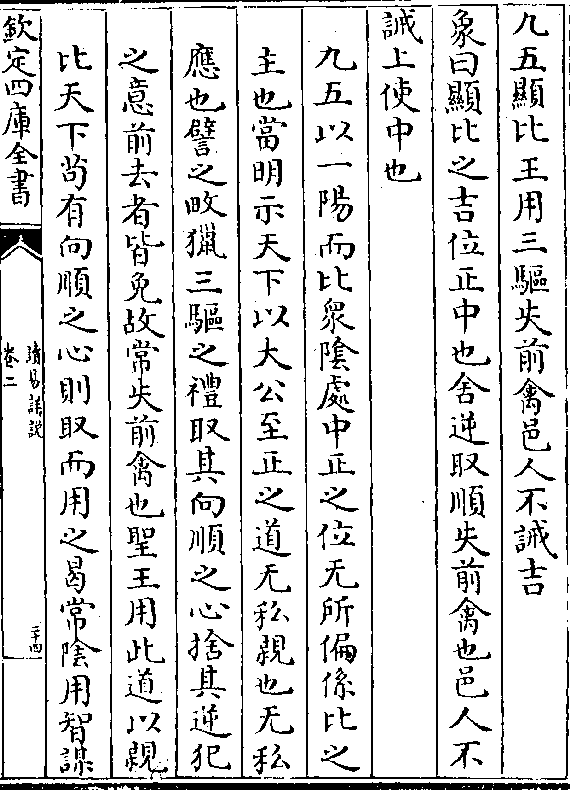 九五顯比王用三驅失前禽邑人不誡吉
象曰顯比之吉位正中也舍逆取順失前禽也邑人不
誡上使中也
九五以一陽而比衆陰處中正之位无所偏係比之
主也當明示天下以大公至正之道无私親也无私
應也譬之畋獵三驅之禮取其向順之心捨其逆犯
之意前去者皆免故常失前禽也聖王用此道以親
比天下茍有向順之心則取而用之曷常陰用智謀
欽定四庫全書
讀易詳說
卷二
二十四